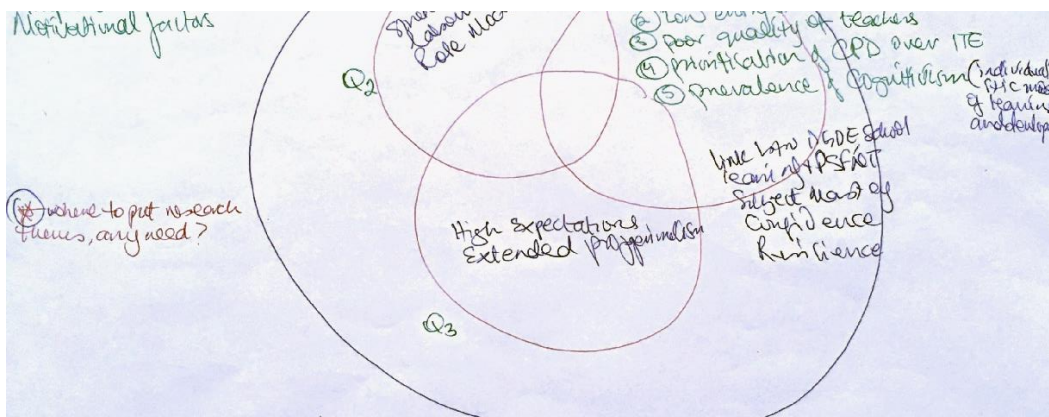 Motivational factors
Role
Q2
② low entry
③ poor quality of teachers
④ prioritisation of CPD over ITE
⑤ prevalence of Cognitivism (individual
of learning
and develop
link btw
learning
Subject Mastery
Confidence
Resilience
where to put research
themes, any need?
High Expectations
Extended professionalism
Q3